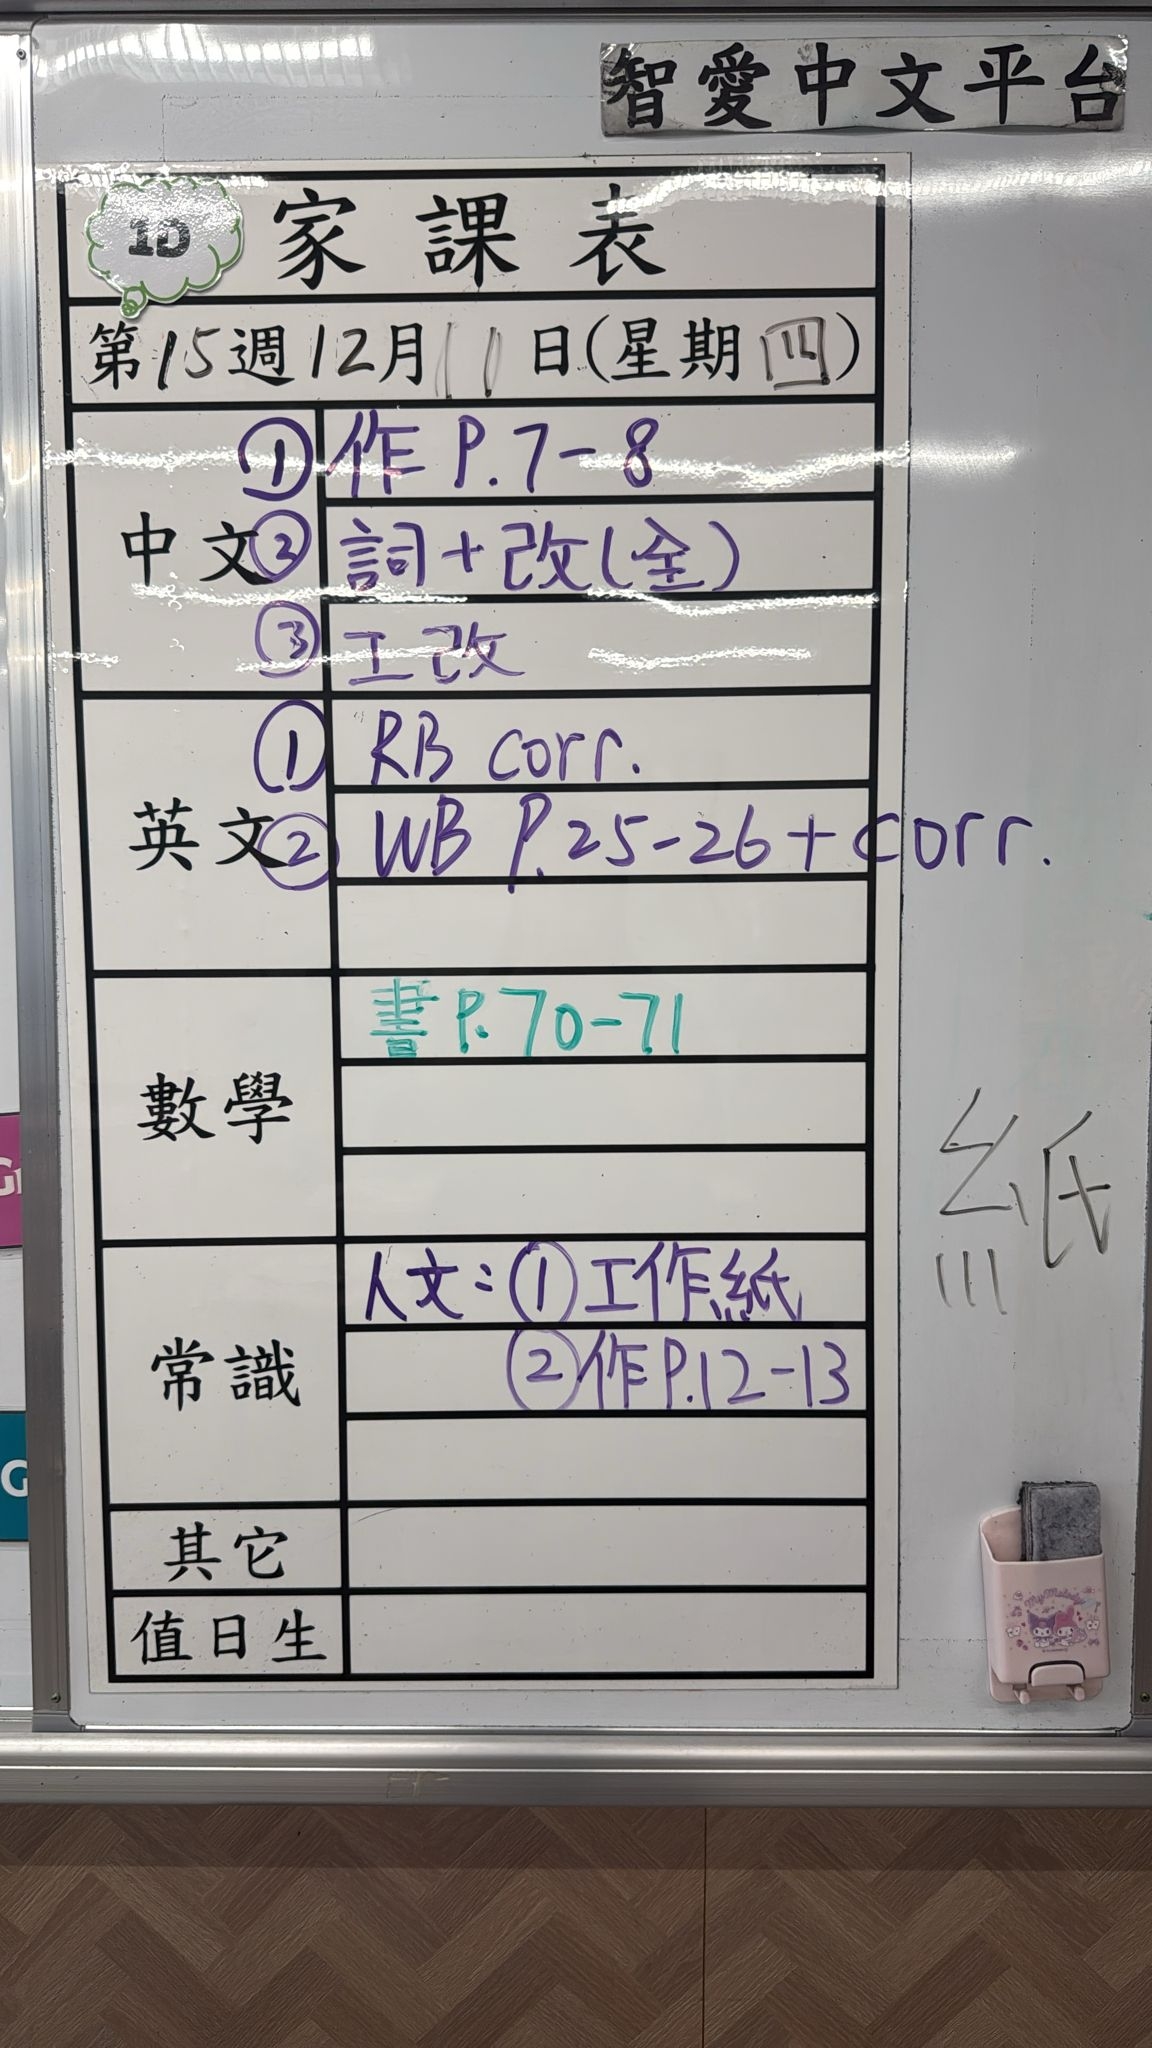 智愛中文平台
1D 家課表
第15週12月11日(星期四)
中文 ①作 P.7-8
②詞+改(全)
③工改
英文 ① RB corr.
② WB P.25-26 + corr.
數學 書P.70-71
紙
常識 人文:①工作紙
②作P.12-13
其它
值日生
My Melody